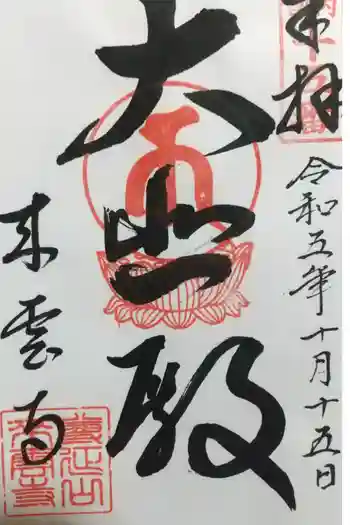 奉拝
令和五年十月十五日
大悲殿
東雲寺